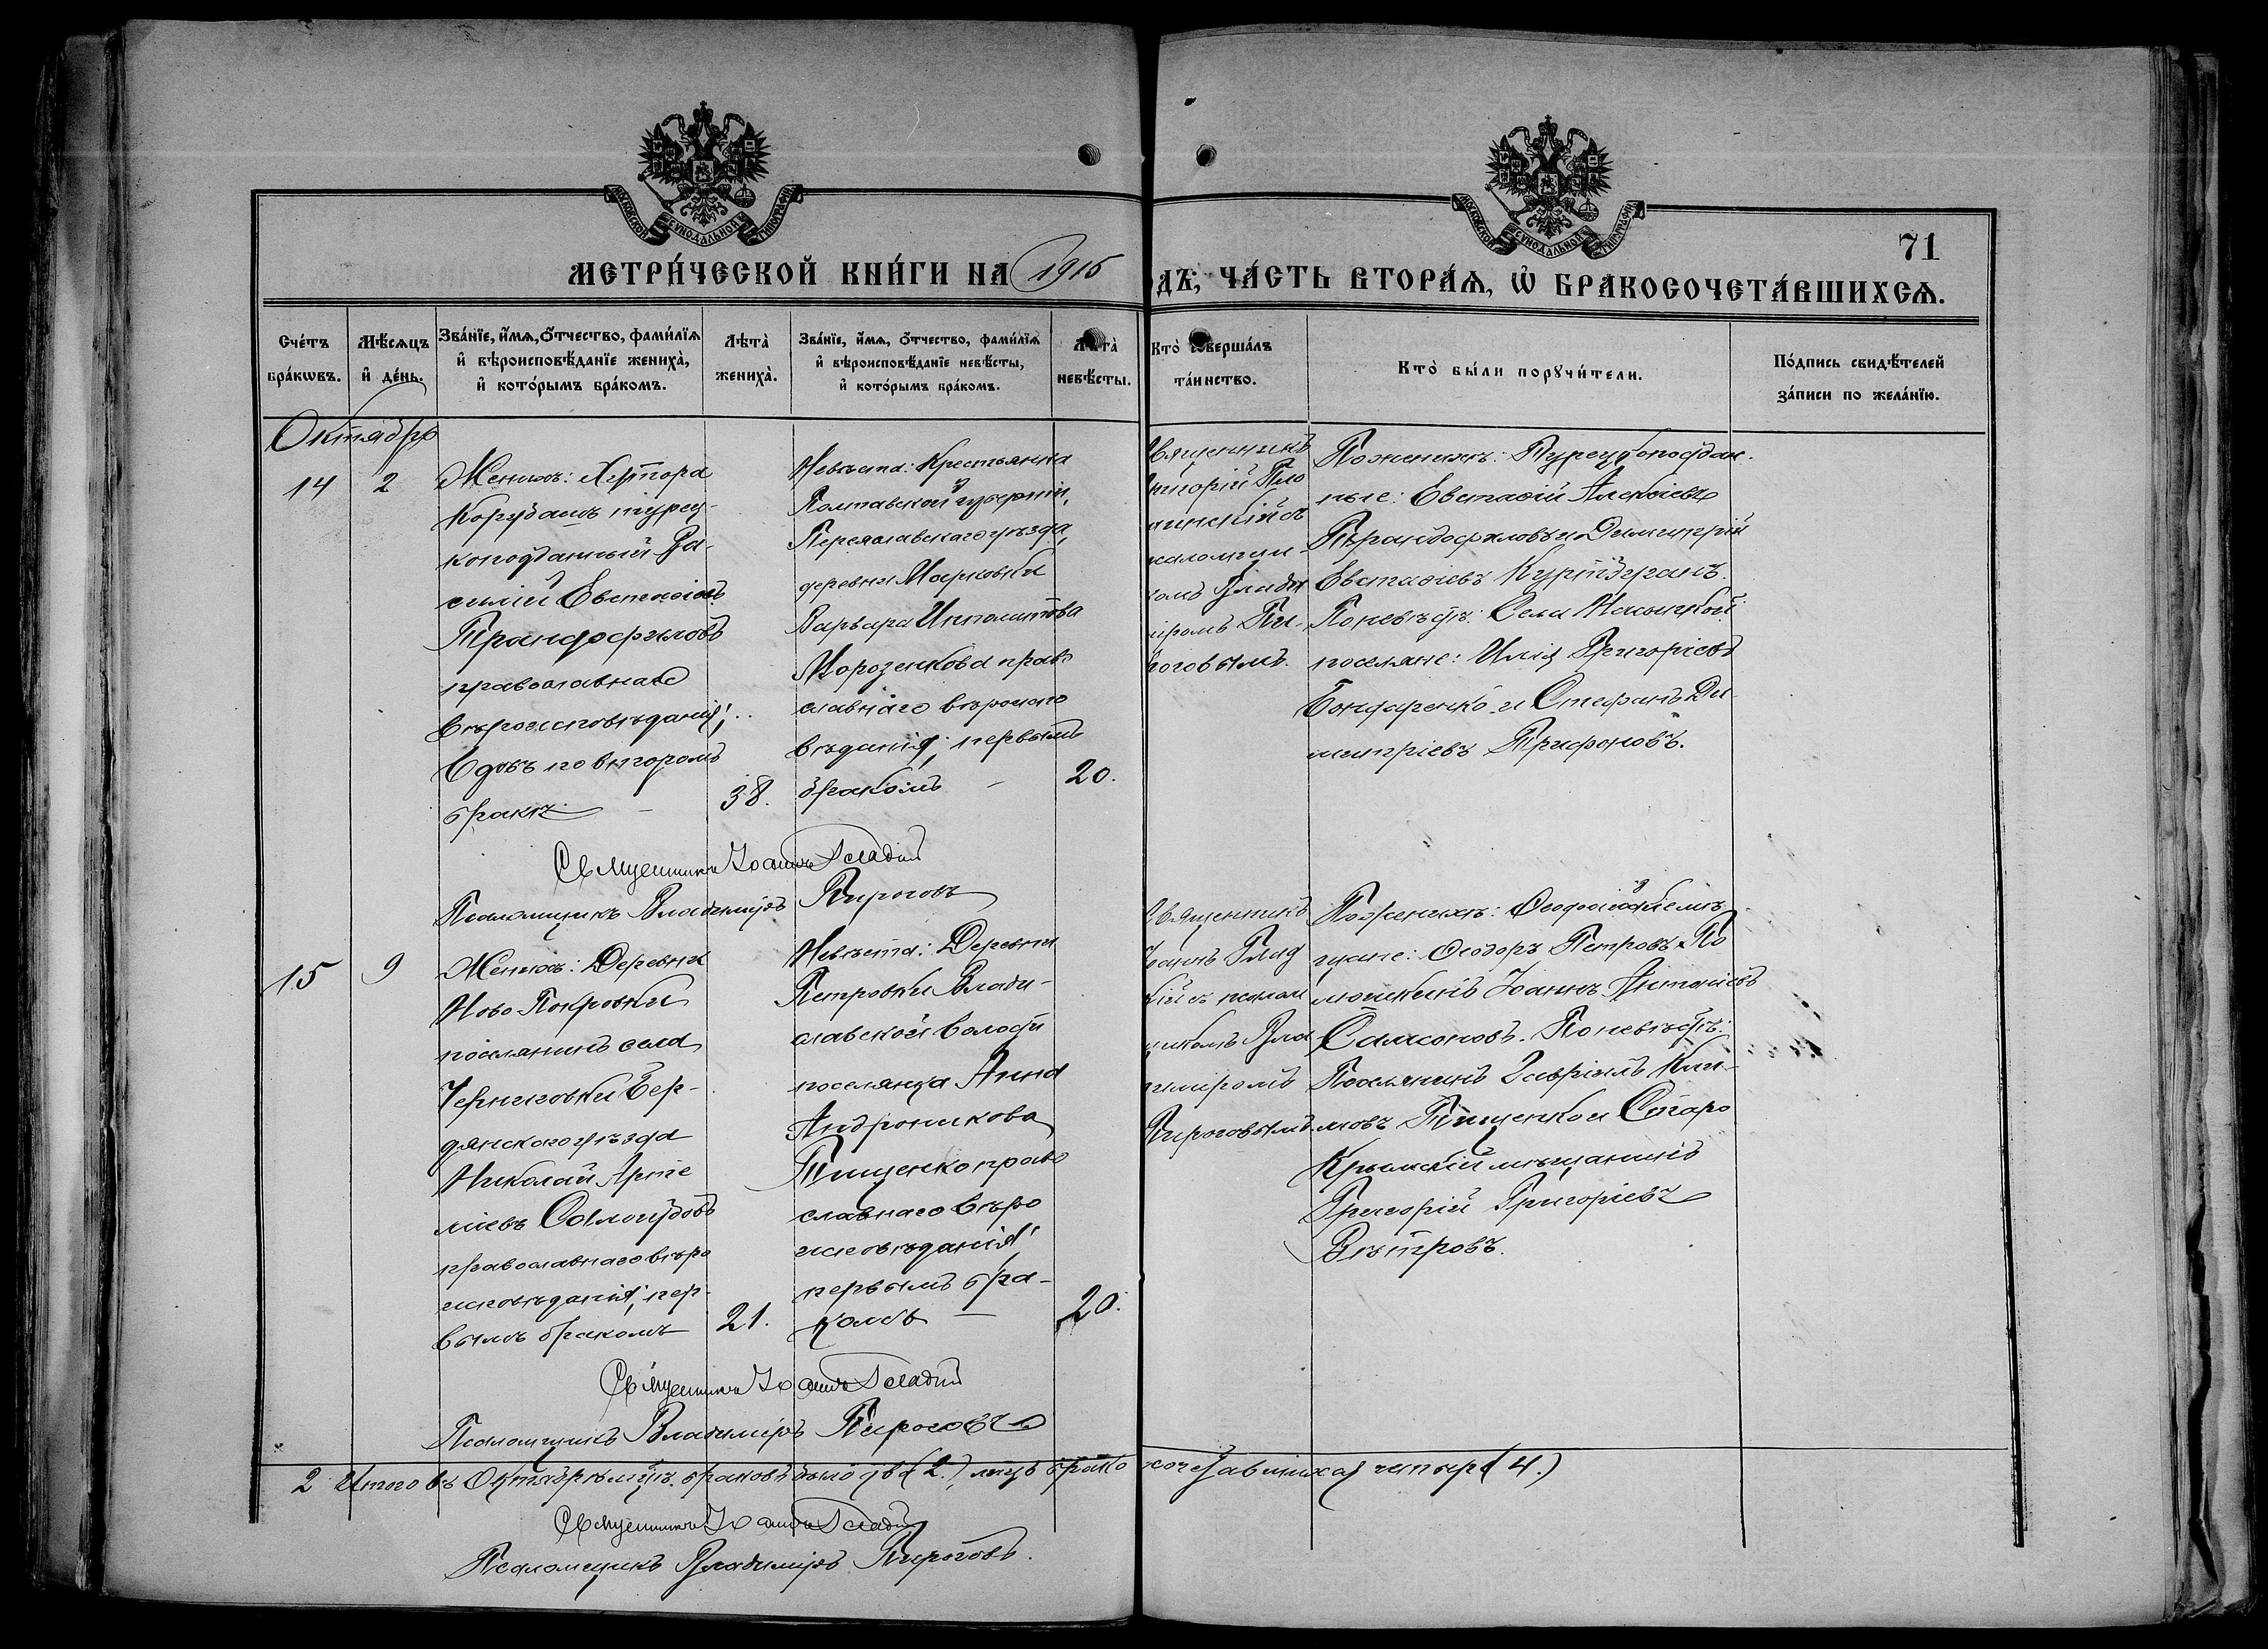 МОСКОВСКОЙ СУНОДАЛЬНОЙ ТИПОГРАФІИ
МОСКОВСКОЙ СУНОДАЛЬНОЙ ТИПОГРАФІИ
71
МЕТРИ́ЧЕСКОЙ КНИ́ГИ НА 1915
ДѢ, ЧА́СТЬ ВТОРА́Ѧ, Ѽ БРАКОСОЧЕТА́ВШИХСѦ.
Сче́тъ бра́кѡвъ.
Мѣ́сѧцъ и҆ де́нь.
Зва́нїе, и҆́мѧ, ѻ҆́тчество, фами́лїѧ
и҆ вѣроисповѣ́данїе жениха̀,
и҆ кото́рымъ бра́комъ.
Лѣта̀ жениха̀.
Зва́нїе, и҆́мѧ, ѻ҆́тчество, фами́лїѧ
и҆ вѣроисповѣ́данїе невѣ́сты,
и҆ кото́рымъ бра́комъ.
Лѣта̀ невѣ́сты.
Кто̀ соверша́лъ
та́инство.
Кто̀ бы́ли порꙋчи́тели.
По́дпись свидѣ́телей
за́писи по жела́нїю.
Октябрь
14
2
Женихъ:
турец-
коподданный Ва-
силій Евстафіевъ
Трандофиловъ
православнаго
вѣроисповѣданія;
вдовъ по второмъ
бракѣ
38.
Невѣста: Крестьянка
Полтавской губерніи,
Переяславскаго уѣзда,
деревни Марковки
Варвара Ипполитова
Морозенкова право
славнаго вѣроиспо
вѣданія; первымъ
бракомъ
20.
Священникъ
Григорій
псаломщи-
комъ Влади
міромъ Пи-
роговымъ.
По женихѣ: Турецкоподдан.
ные: Евстафій Алексіевъ
Трандофиловъ и Димитрій
Евстафіевъ
По невѣстѣ: Села
поселяне: Илія Григоріевъ
Бондаренко и Стефанъ Ди-
митріевъ Трифоновъ.
Священникъ Іоаннъ Гладкій
Псаломщикъ Владиміръ Пироговъ
15
9
Женихъ: Деревни
Ново Покровки
поселянинъ села
Черниговки Бер-
дянскаго уѣзда
Николай Арте
міевъ Самойдовъ
православнаго вѣро
исповѣданія, пер-
вымъ бракомъ
21.
Невѣста: Деревни
Петровки Влади-
славской волости
поселянка Анна
Андроникова
Тищенко право
славнаго вѣро
исповѣданія,
первымъ бра-
комъ
20.
Священникъ
Іоаннъ Глад
кій съ псалом
щикомъ Вла
диміромъ
Пироговымъ.
По женихѣ: Феодосійскіе мѣ
щане: Феодоръ Петровъ По
Іоаннъ Антоніевъ
Самсоновъ. По невѣстѣ:
Поселянинъ Гавріилъ Кли-
мовъ Тищенко и Старо
Крымскій мѣщанинъ
Григорій Григоріевъ
Вѣтровъ.
Священникъ Іоаннъ Гладкій
Псаломщикъ Владиміръ Пироговъ
2 Итого въ Октябрѣ мцѣ. браковъ было два (2.), лицъ брако
сочетавшихся четыре (4.)
Священникъ Іоаннъ Гладкій
Псаломщикъ Владиміръ Пироговъ.